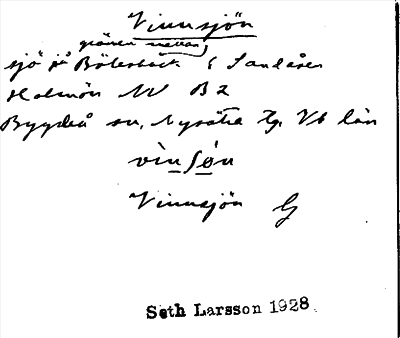 Vinnsjön
gränsen mellan
sjö på Bölesbäck & Sandåsen
Holmön NV B2
Bygdeå sn, Nysätra tg. Vb län
vin ʃön
Vinnsjön G
Seth Larsson 1928